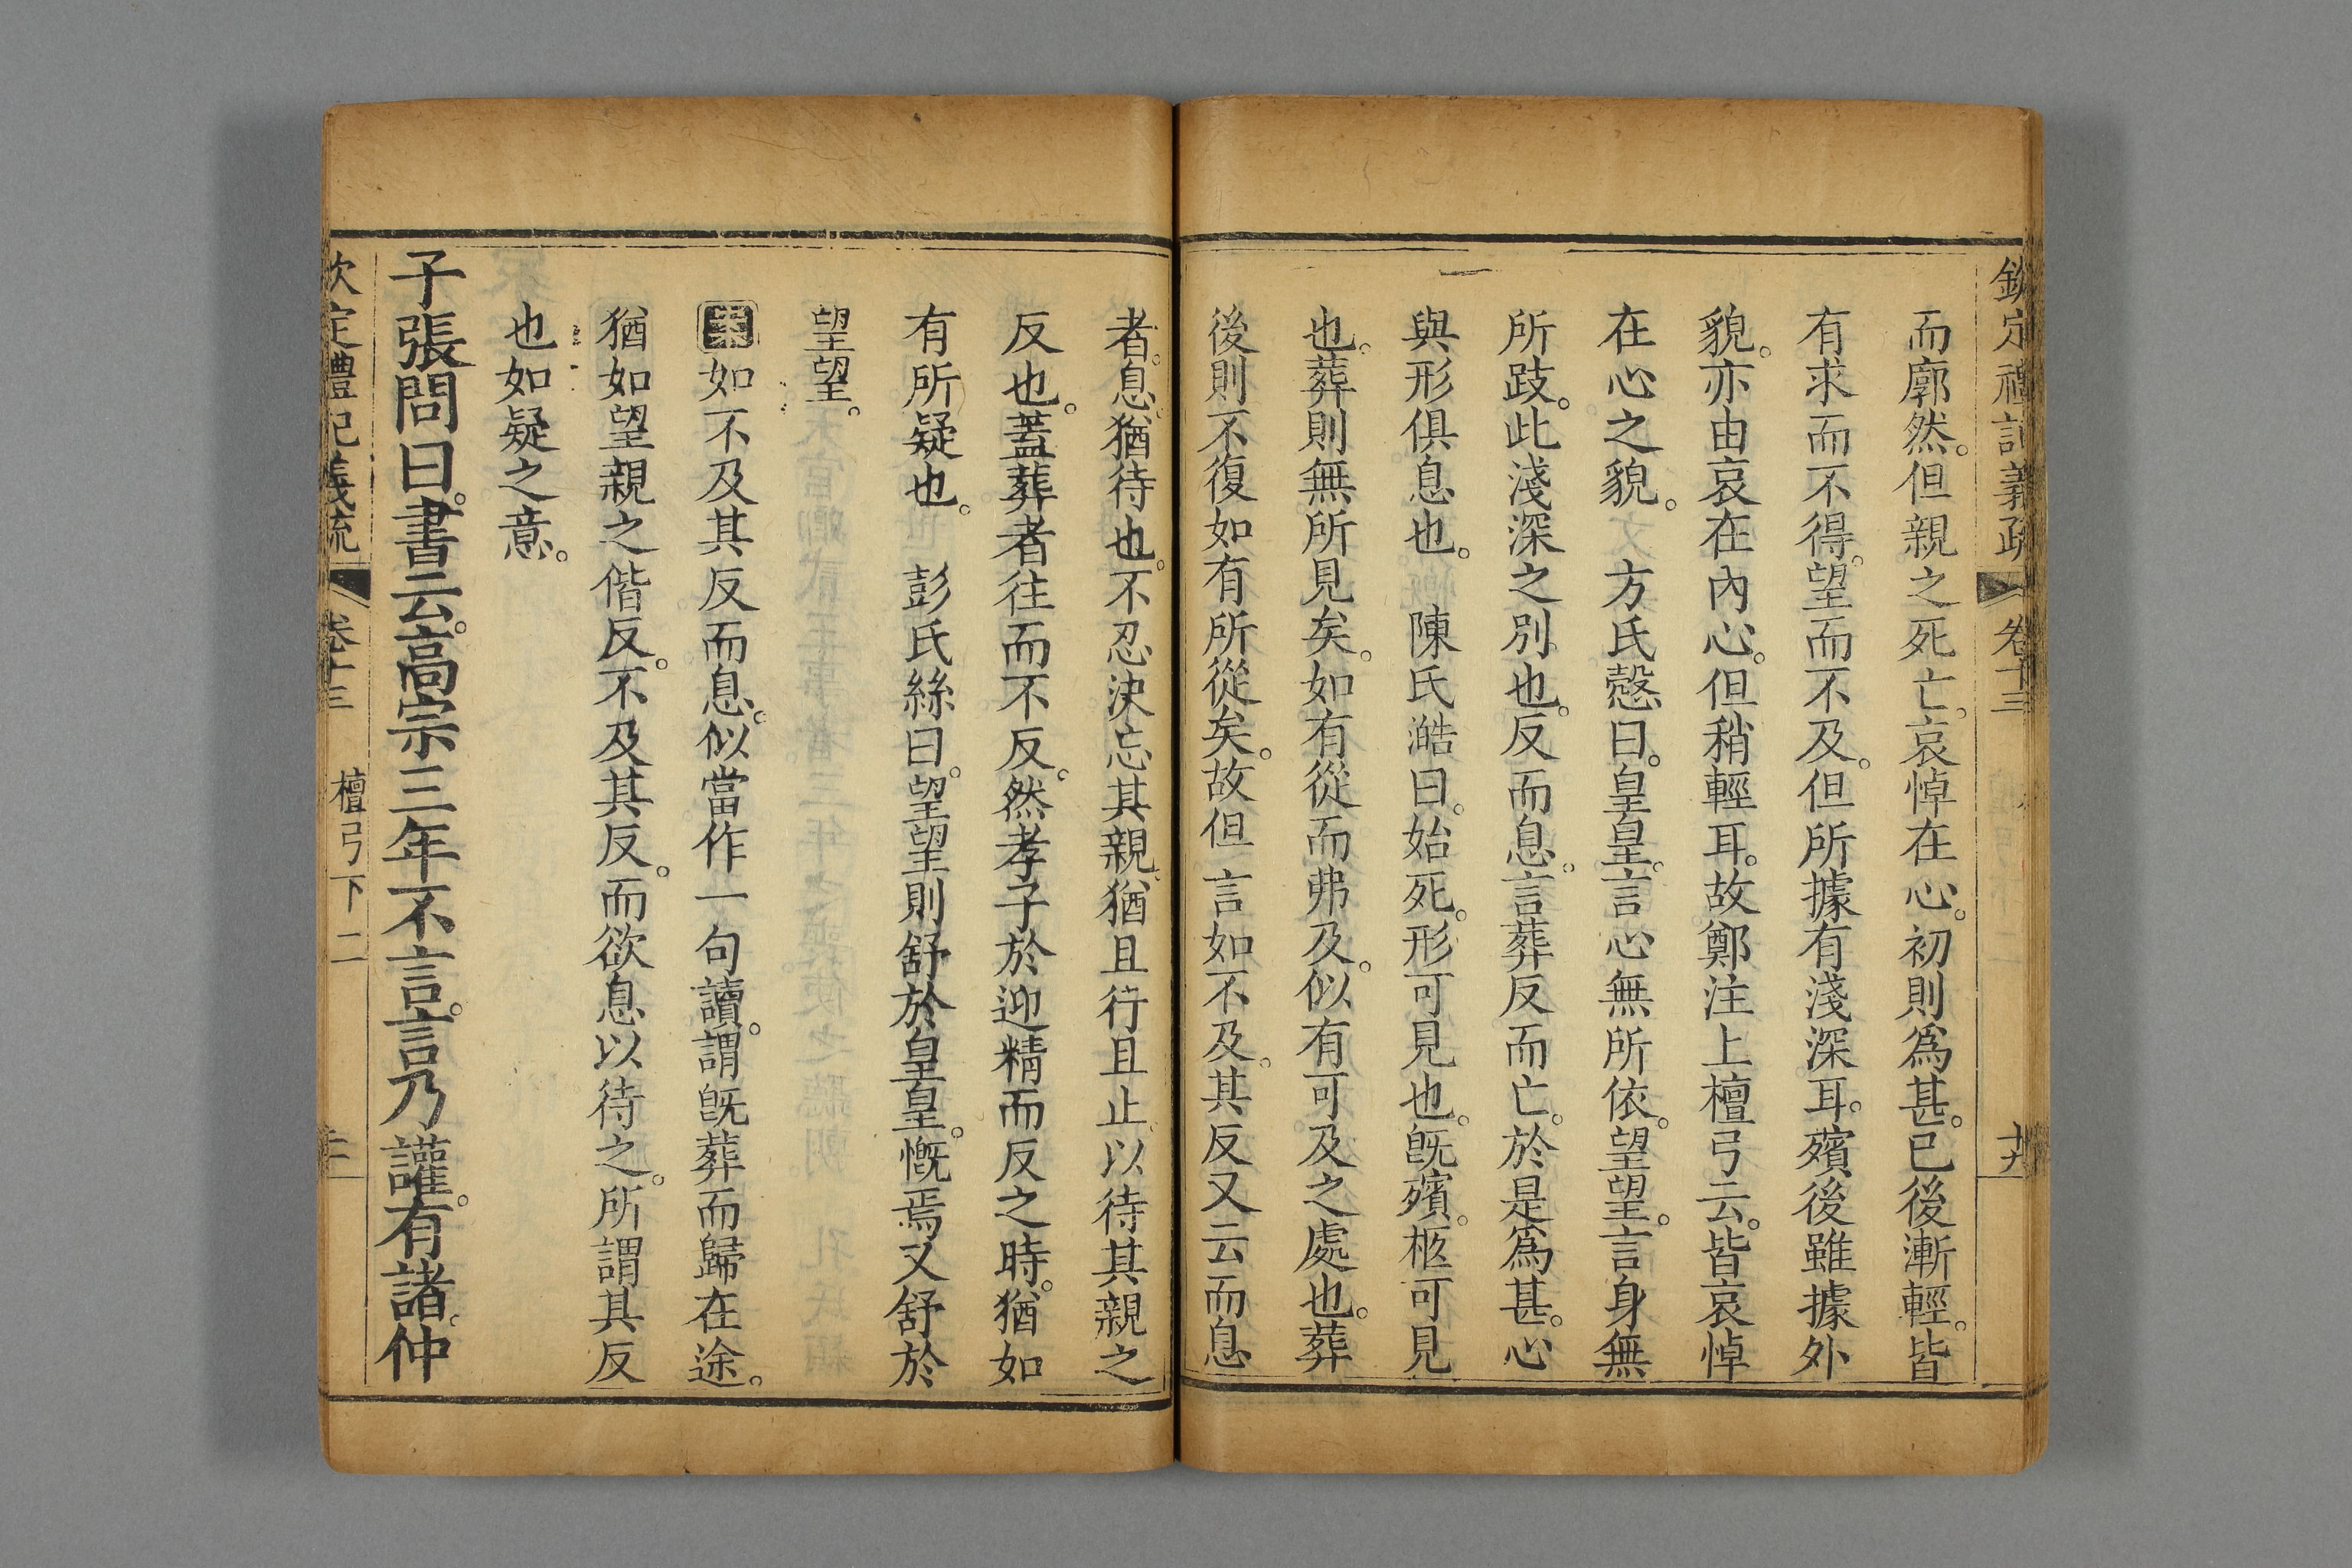 欽定禮記義疏 卷十三 十九
而廓然。但親之死亡。哀悼在心。初則爲甚。已後漸輕。皆
有求而不得。望而不及。但所據有淺深耳。殯後雖據外
貌。亦由哀在內心。但稍輕耳。故鄭注上檀弓云。皆哀悼
在心之貌。 方氏慤曰。皇皇。言心無所依。望望。言身無
所跂。此淺深之別也。反而息。言葬反而亡。於是爲甚。心
與形俱息也。 陳氏澔曰。始死。形可見也。旣殯。柩可見
也。葬則無所見矣。如有從而弗及。似有可及之處也。葬
後則不復如有所從矣。故但言如不及。其反又云而息
者。息猶待也。不忍決忘其親。猶且行且止。以待其親之
反也。蓋葬者往而不反。然孝子於迎精而反之時。猶如
有所疑也。 彭氏絲曰。望望則舒於皇皇。慨焉又舒於
望望。
案如不及其反而息。似當作一句讀。謂旣葬而歸在途。
猶如望親之偕反。不及其反。而欲息以待之。所謂其反
也如疑之意。
子張問曰。書云。高宗三年不言。言乃讙。有諸。仲
欽定禮記義疏 卷十三 檀弓下二